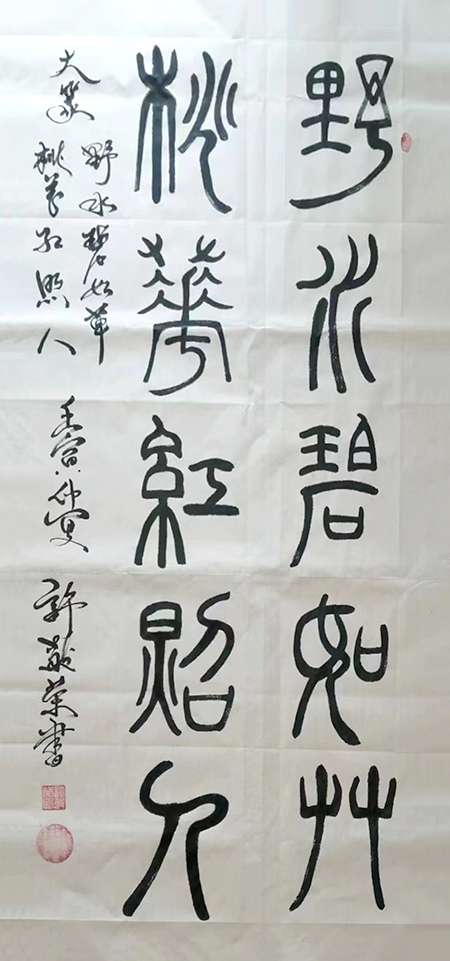 野水碧如艸
桃華紅照人
大篆
野水碧如草
桃花红照人
壬寅仲夏
許荣書